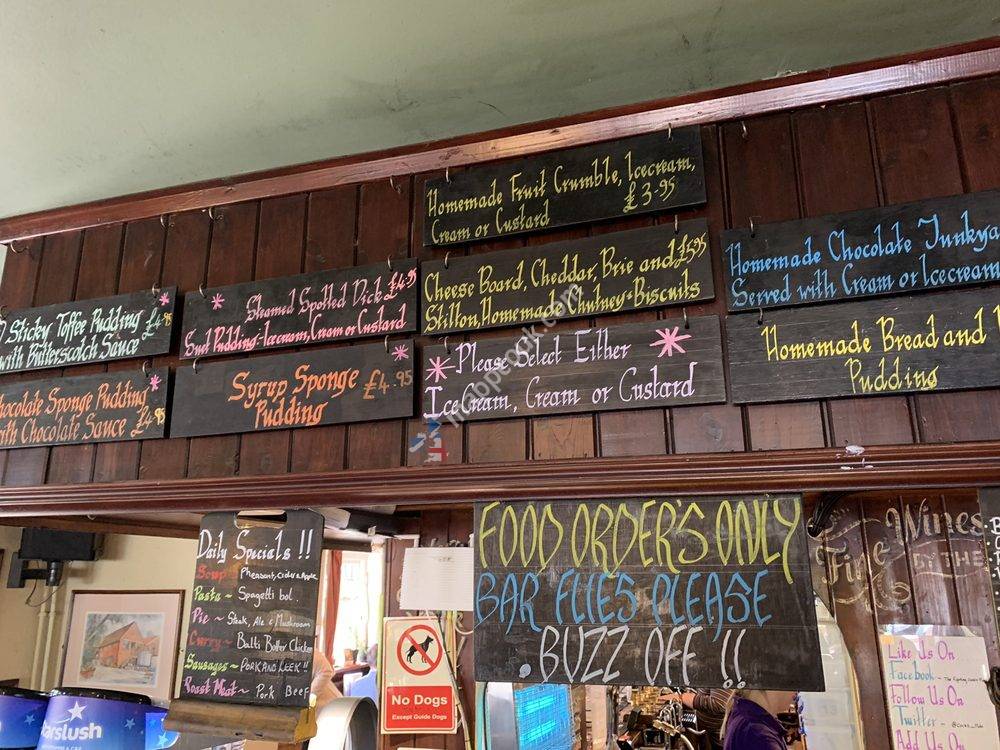 Homemade Fruit Crumble, Icecream,
Cream or Custard £3.95
Sticky Toffee Pudding £4.95
with Butterscotch Sauce
Steamed Spotted Dick £4.95
Suet Pudding - Icecream, Cream or Custard
Cheese Board, Cheddar, Brie and £5.95
Stilton, Homemade Chutney + Biscuits
Homemade Chocolate Junkya
Served with Cream or Icecream
hocolate Sponge Pudding
ith Chocolate Sauce £4.95
Syrup Sponge £4.95
Pudding
Please Select Either
Ice Cream, Cream or Custard
Homemade Bread and
Pudding
Daily Specials !!
Soup - Pheasant, Cider & Apple
Pasta ~ Spagetti bol.
Pie ~ Steak, Ale & Mushroom
Curry ~ Balti Butter Chicken
Sausages ~ PORK AND LEEK !!
Roast Meat ~ Pork Beef
FOOD ORDER'S ONLY
BAR FLIES PLEASE
. BUZZ OFF !!
Fine Wines
BY THE
No Dogs
Except Guide Dogs
Starslush
Like Us On
Facebook ~
Follow Us On
Twitter -
Add Us On